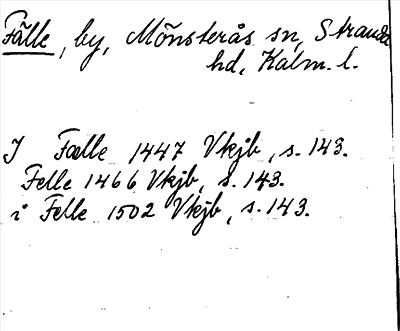 Fälle, by, Mönsterås sn, Stranda
hd, Kalm. l.
I Fælle 1447 Vkjb, s. 143.
Felle 1466 Vkjb, s. 143.
i Felle 1502 Vkjb, s. 143.